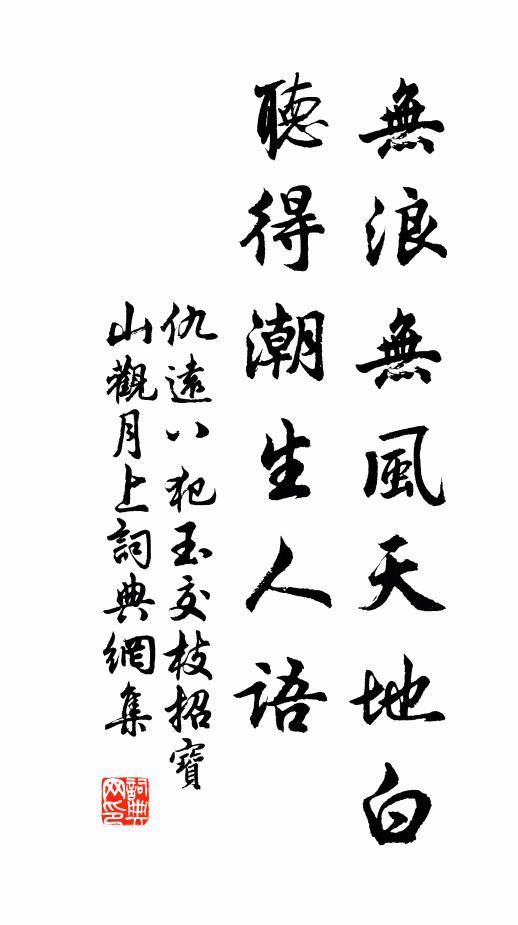 無浪無風天地白
聽得潮生人語
仇遠八犯玉交枝招寶
山觀月上詞典網集
詞典
网印